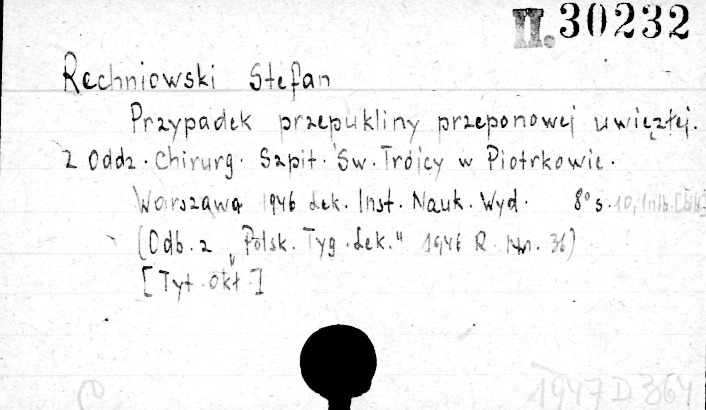 II. 30232
Rechniowski Stefan
Przypadek przepukliny przeponowej uwięzłej.
Z Oddz. Chirurg. Szpit. Św. Trójcy w Piotrkowie.
Warszawa 1946 Lek. Inst. Nauk. Wyd. 8° s. 10, 1nlb.
(Odb. z „Polsk. Tyg. Lek." 1946 R. Nr. 36)
[Tyt. okł.]
1947 D 364